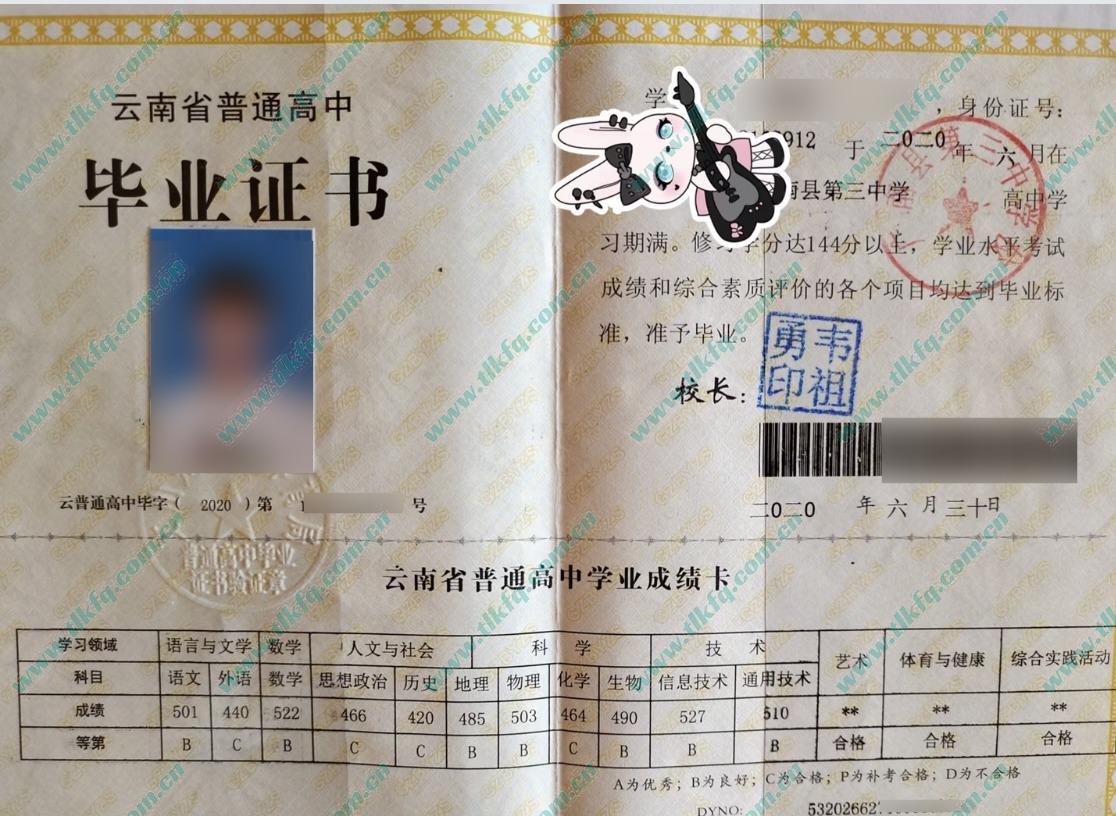 云南省普通高中
毕业证书
学
，身份证号：
912 于 二〇二〇 年 六 月在
南县第三中学 高中学
习期满。修习学分达144分以上，学业水平考试
成绩和综合素质评价的各个项目均达到毕业标
准，准予毕业。
校长：
韦祖勇印
云普通高中毕字（ 2020 ）第 1 号
二〇二〇 年 六 月 三十日
普通高中毕业
证书验证章
云南省普通高中学业成绩卡
学习领域 语言与文学 数学 人文与社会 科 学 技 术 艺术 体育与健康 综合实践活动
科目 语文 外语 数学 思想政治 历史 地理 物理 化学 生物 信息技术 通用技术
成绩 501 440 522 466 420 485 503 464 490 527 510 ** ** **
等第 B C B C C B B C B B B 合格 合格 合格
A为优秀；B为良好；C为合格；P为补考合格；D为不合格
DYNO: 53202662
www.tlkfq.com.cn